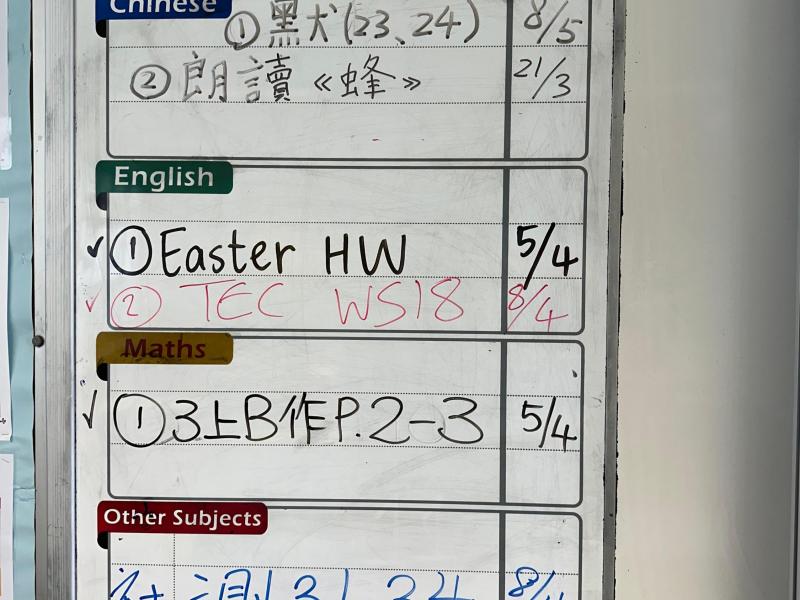 Chinese
① 黑犬(23、24) 8/5
② 朗讀《蜂》 21/3
English
✓ ① Easter HW 5/4
✓ ② TEC WS18 8/4
Maths
✓ ① 3上B作P.2-3 5/4
Other Subjects